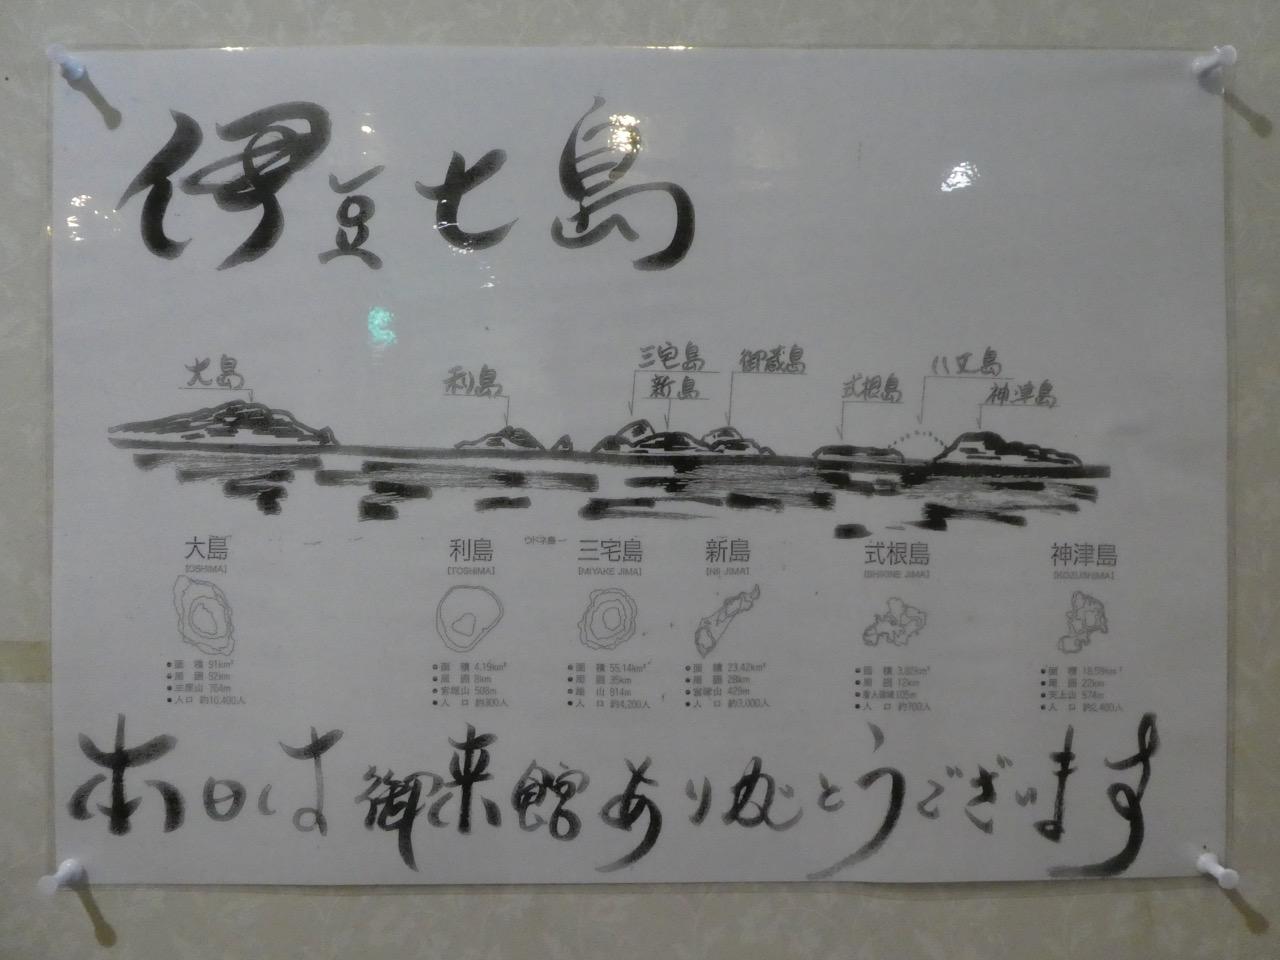 伊豆七島
大島
利島
三宅島
新島
御蔵島
式根島
八丈島
神津島
大島
[OSHIMA]
●面積 91km²
●周囲 52km
●三原山 764m
●人口 約10,400人
利島
[TOSHIMA]
●面積 4.19km²
●周囲 8km
●宮塚山 508m
●人口 約300人
ウドネ島
三宅島
[MIYAKE JIMA]
●面積 55.14km²
●周囲 35km
●雄山 814m
●人口 約4,200人
新島
[NII JIMA]
●面積 23.42km²
●周囲 28km
●宮塚山 429m
●人口 約3,000人
式根島
[SHIKINE JIMA]
●面積 3.82km²
●周囲 12km
105m
●人口 約700人
神津島
[KOZUSHIMA]
●面積 18.59km²
●周囲 22km
●天上山 574m
●人口 約2,400人
本日は御来館ありがとうございます